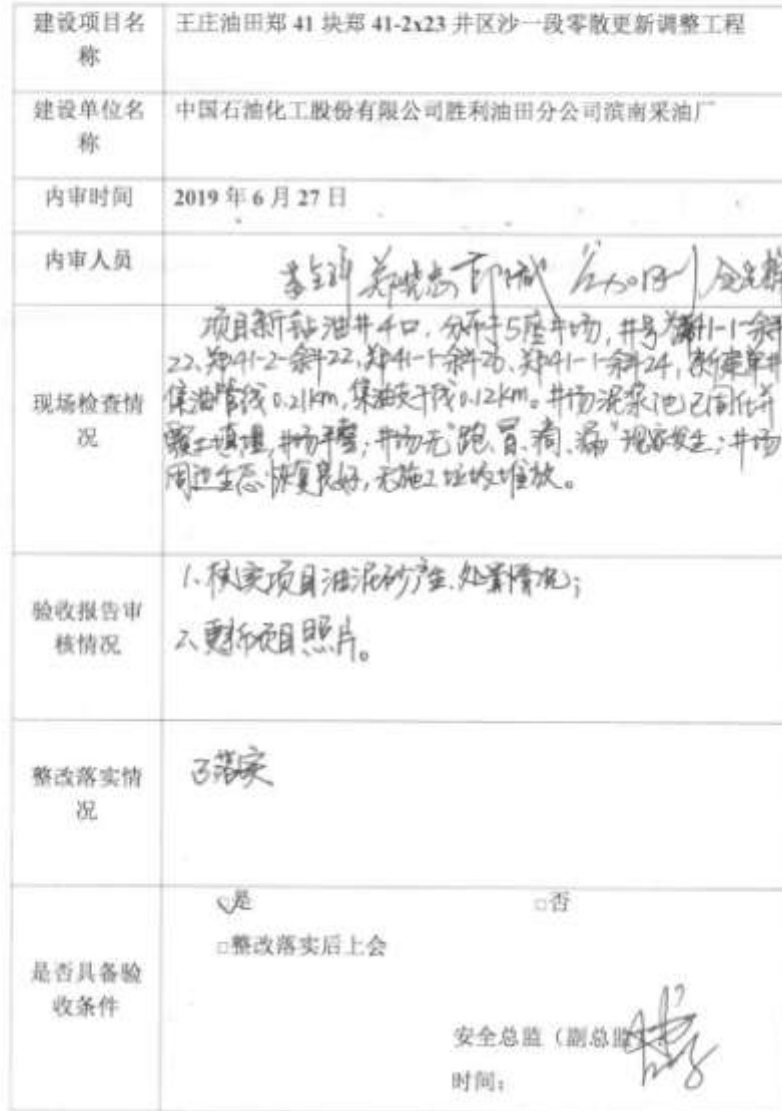 建设项目名称
王庄油田郑 41 块郑 41-2x23 井区沙一段零散更新调整工程
建设单位名称
中国石油化工股份有限公司胜利油田分公司滨南采油厂
内审时间
2019 年 6 月 27 日
内审人员
现场检查情况
项目新钻油井4口，分布于5座井场，井号为郑41-1-斜
22、郑41-2-斜22、郑41-1-斜26、郑41-1-斜24，新建单井
集油管线0.21km，集油支干线0.12km。井场泥浆池已固化并
覆土填埋，井场平整；井场无"跑、冒、滴、漏"现象发生；井场
周边生态恢复良好，无施工垃圾堆放。
验收报告审核情况
1、核实项目油泥砂产生、处置情况；
2、更新项目照片。
整改落实情况
已落实
是否具备验收条件
☑是 □否
□整改落实后上会
安全总监（副总监
时间：